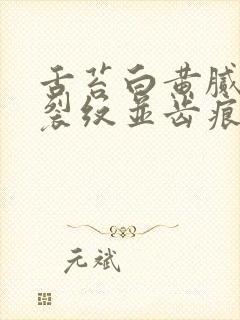 舌苔白黄腻
裂纹並齿痕
元斌